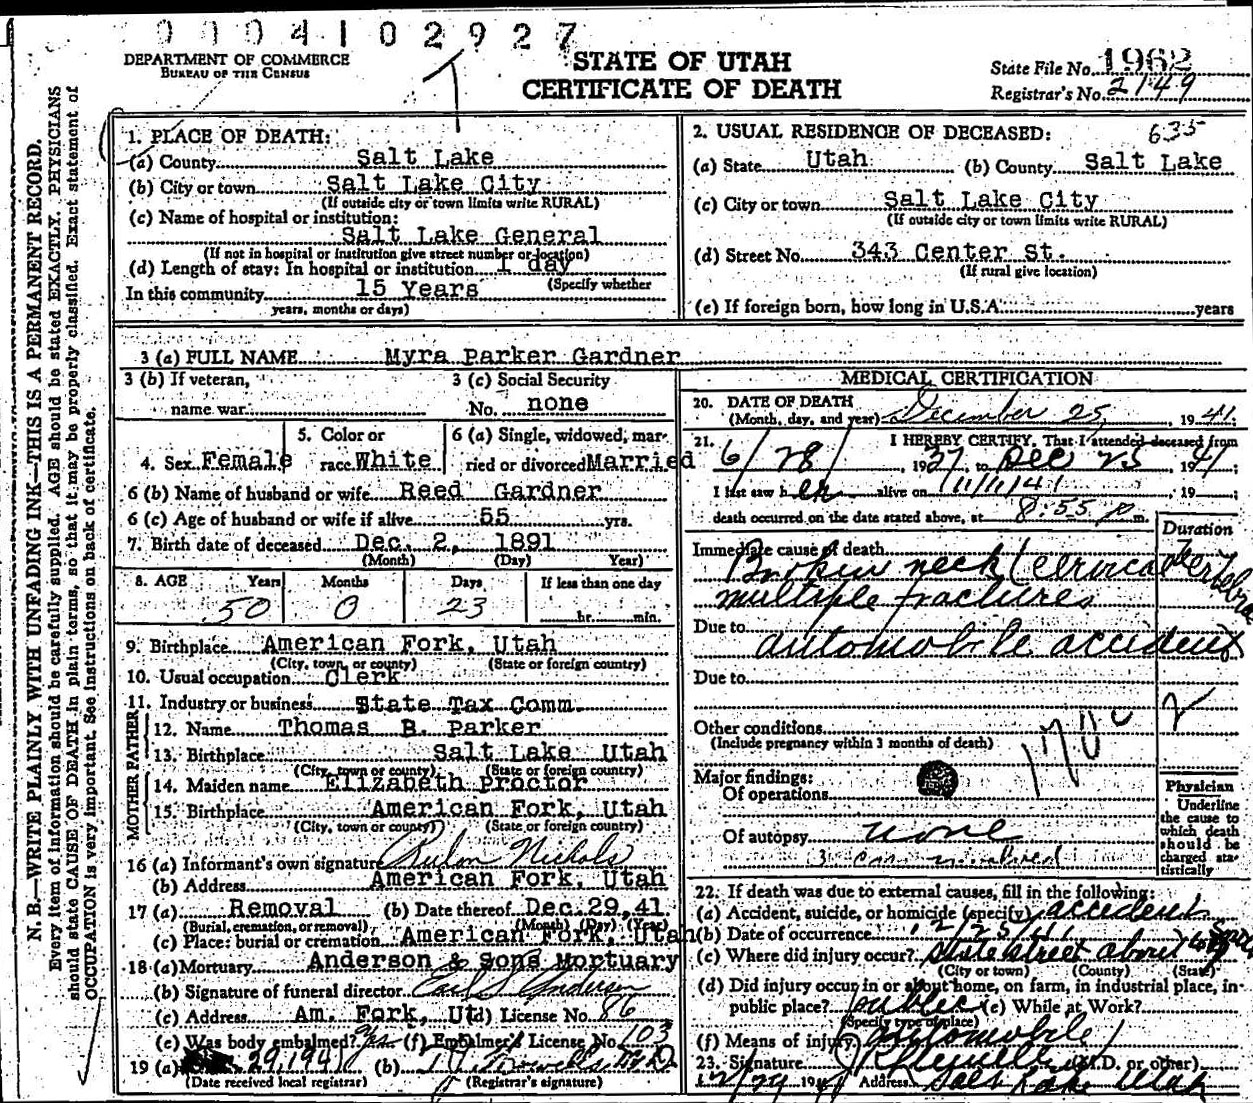 0 0 0 4 1 0 2 9 2 7
DEPARTMENT OF COMMERCE
BUREAU OF THE CENSUS
STATE OF UTAH
CERTIFICATE OF DEATH
State File No. 1962
Registrar's No. 2149
N. B.—WRITE PLAINLY WITH UNFADING INK—THIS IS A PERMANENT RECORD.
Every item of information should be carefully supplied. AGE should be stated EXACTLY. PHYSICIANS
should state CAUSE OF DEATH in plain terms, so that it may be properly classified. Exact statement of
OCCUPATION is very important. See instructions on back of certificate.
1. PLACE OF DEATH:
(a) County Salt Lake
(b) City or town Salt Lake City
(If outside city or town limits write RURAL)
(c) Name of hospital or institution:
Salt Lake General
(If not in hospital or institution give street number or location)
(d) Length of stay: In hospital or institution 1 day
(Specify whether
In this community 15 Years
years, months or days)
2. USUAL RESIDENCE OF DECEASED: 635
(a) State Utah (b) County Salt Lake
(c) City or town Salt Lake City
(If outside city or town limits write RURAL)
(d) Street No. 343 Center St.
(If rural give location)
(e) If foreign born, how long in U.S.A. years
3 (a) FULL NAME Myra Parker Gardner
3 (b) If veteran,
name war
3 (c) Social Security
No. none
4. Sex Female
5. Color or
race White
6 (a) Single, widowed, mar-
ried or divorced Married
6 (b) Name of husband or wife Reed Gardner
6 (c) Age of husband or wife if alive 55 yrs.
7. Birth date of deceased Dec. 2, 1891
(Month) (Day) Year)
8. AGE Years Months Days If less than one day
50 0 23 hr. min.
9. Birthplace American Fork, Utah
(City, town, or county) (State or foreign country)
10. Usual occupation Clerk
11. Industry or business State Tax Comm.
MOTHER FATHER
12. Name Thomas B. Parker
13. Birthplace Salt Lake Utah
(City, town or county) (State or foreign country)
14. Maiden name Elizabeth Proctor
15. Birthplace American Fork, Utah
(City, town or county) (State or foreign country)
16 (a) Informant's own signature Rulon Nichols
(b) Address American Fork, Utah
17 (a) Removal (b) Date thereof Dec. 29, 41
(Burial, cremation, or removal) (Month) (Day) (Year)
(c) Place: burial or cremation American Fork, Utah
18 (a) Mortuary Anderson & Sons Mortuary
(b) Signature of funeral director Earl S Anderson
(c) Address Am. Fork, Ut (d) License No. 86
(e) Was body embalmed? yes (f) Embalmer's License No. 103
19 (a) 29, 1941 (b) M.D.
(Date received local registrar) (Registrar's signature)
MEDICAL CERTIFICATION
20. DATE OF DEATH
(Month, day, and year) December 25, 1941
21. I HEREBY CERTIFY, That I attended deceased from
6/28/, 1937, to Dec 25 1941;
I last saw h er alive on 11/1/41, 19
death occurred on the date stated above, at 8:55 p m.
Duration
Immediate cause of death
Broken neck (cervical vertebrae
multiple fractures
Due to
automobile accident
Due to
2
Other conditions
(Include pregnancy within 3 months of death)
Major findings:
Of operations
Of autopsy none
3 car involved
Physician
Underline
the cause to
which death
should be
charged sta-
tistically
22. If death was due to external causes, fill in the following:
(a) Accident, suicide, or homicide (specify) accident
(b) Date of occurrence 12/25/41
(c) Where did injury occur? State street about
(City or town) (County) (State)
(d) Did injury occur in or about home, on farm, in industrial place, in
public place? public (e) While at Work?
(Specify type of place)
(f) Means of injury automobile
23. Signature (M.D. or other)
12/29 1941 Address Salt Lake Utah